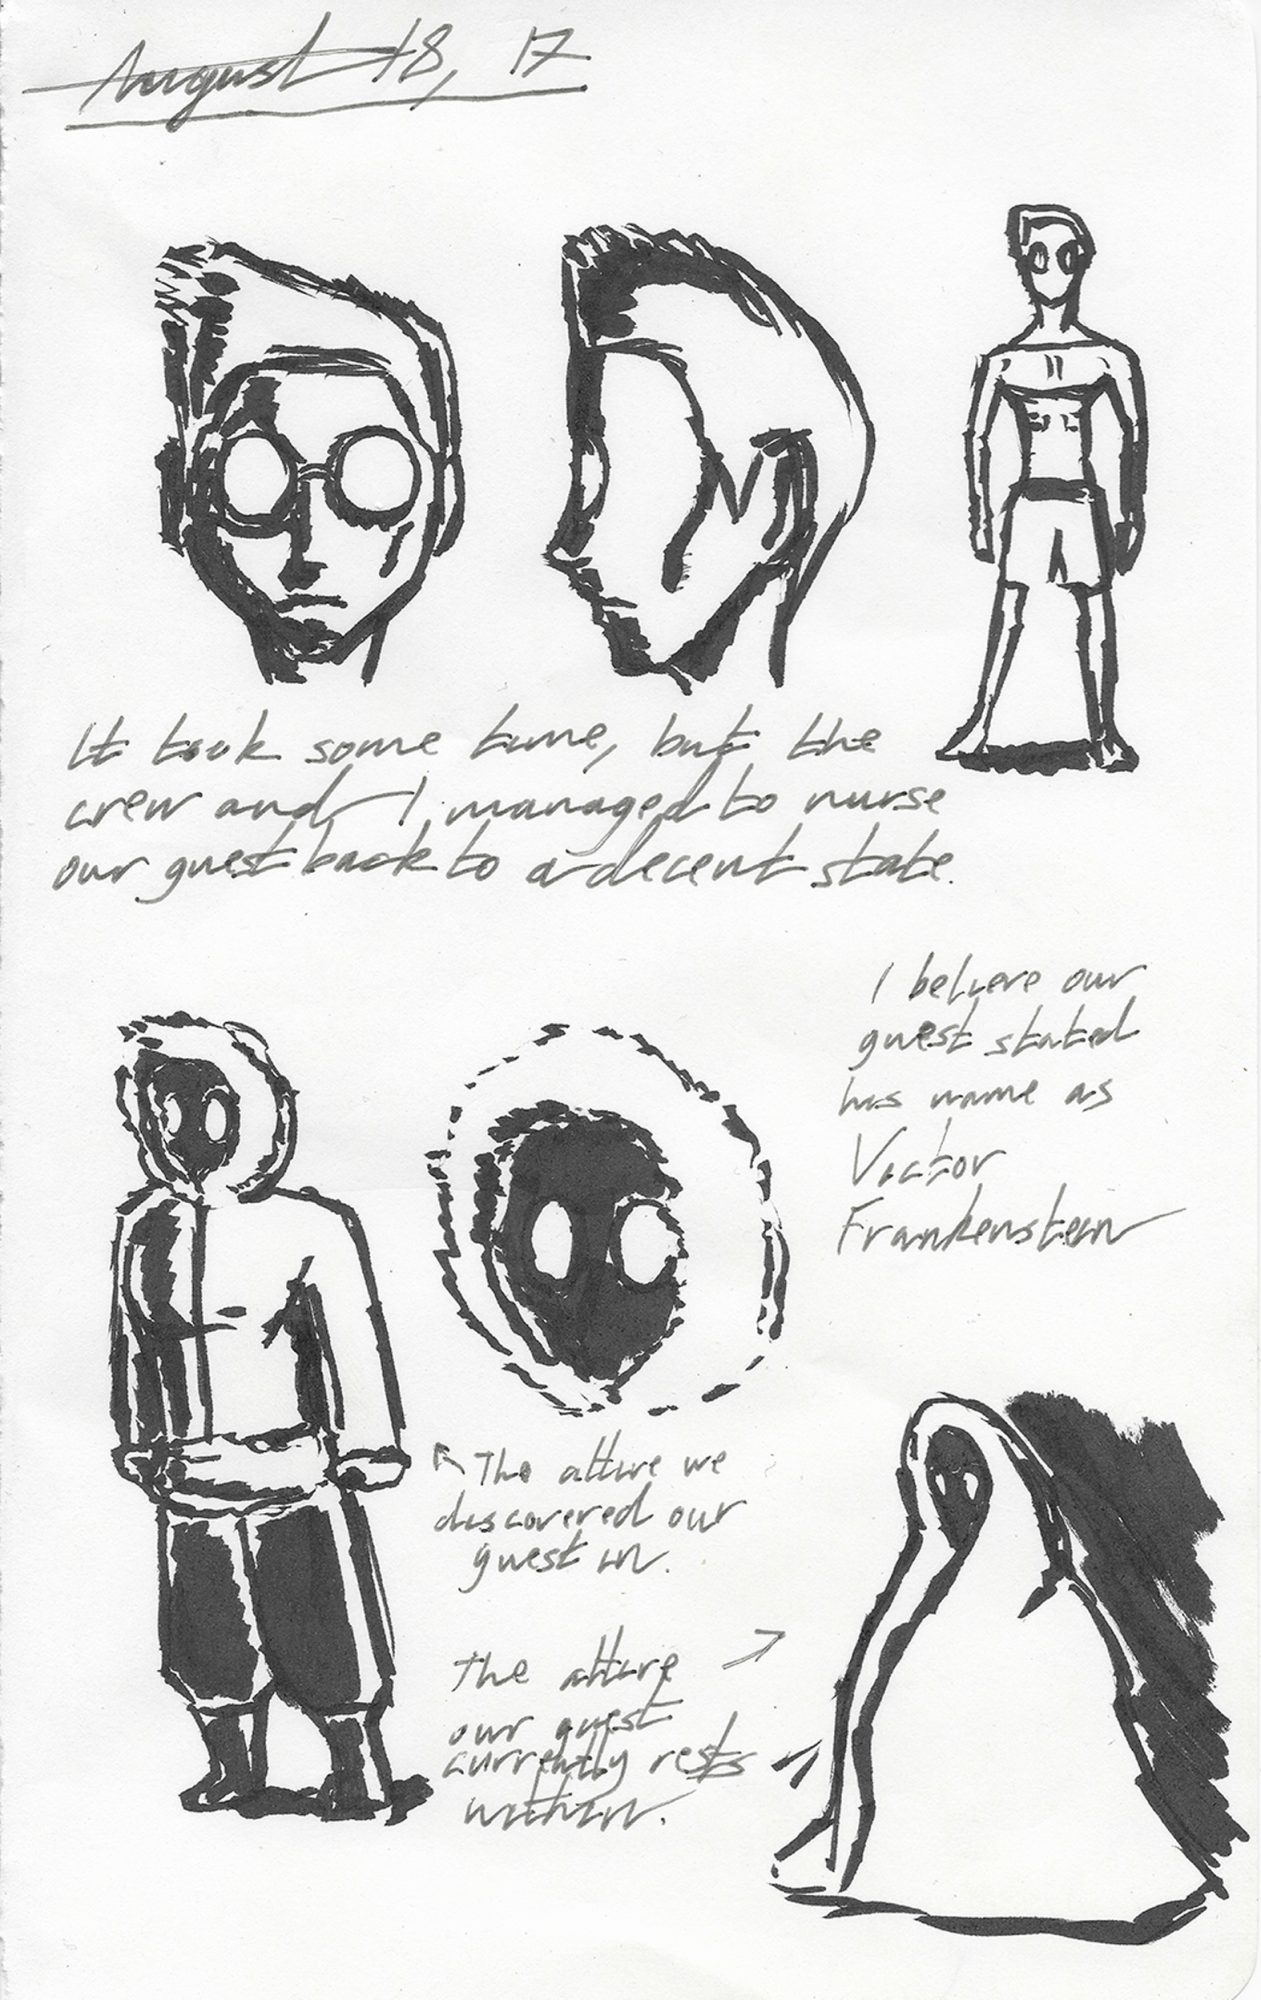 August 18, 17
It took some time, but the
crew and I managed to nurse
our guest back to a decent state.
I believe our
guest stated
his name as
Victor
Frankenstein
The attire we
discovered our
guest in.
The attire
our guest
currently rests
within.